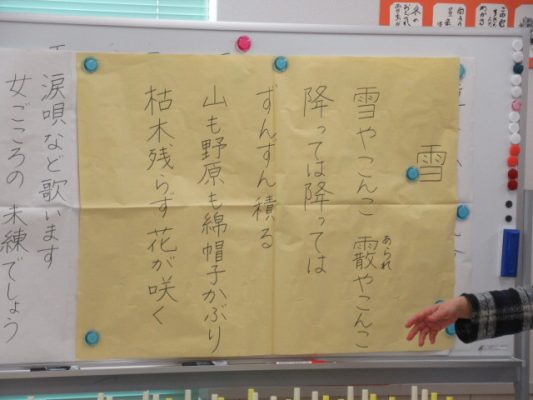 雪
雪やこんこ 霰やこんこ
あられ
降っては降っては
ずんずん積る
山も野原も綿帽子かぶり
枯木残らず花が咲く
涙唄など歌います
女ごころの 未練でしょう